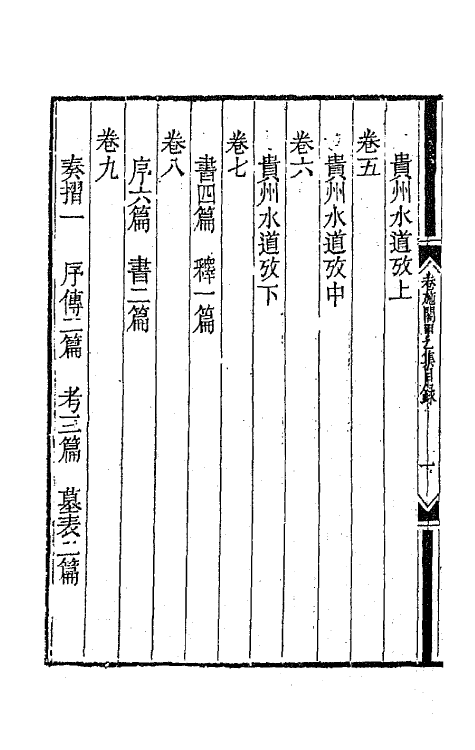 卷施閣甲乙集目錄
貴州水道攷上
卷五
貴州水道攷中
卷六
貴州水道攷下
卷七
書四篇　釋一篇
卷八
序六篇　書二篇
卷九
奏摺一　序傳二篇　考三篇　墓表二篇